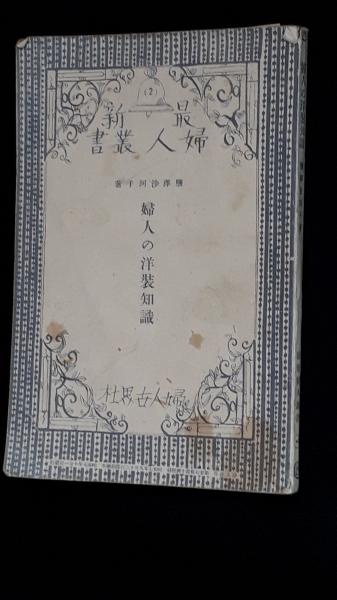 (2)
最新
婦人叢書
鹽澤沙河子著
婦人の洋裝知識
婦人世界社